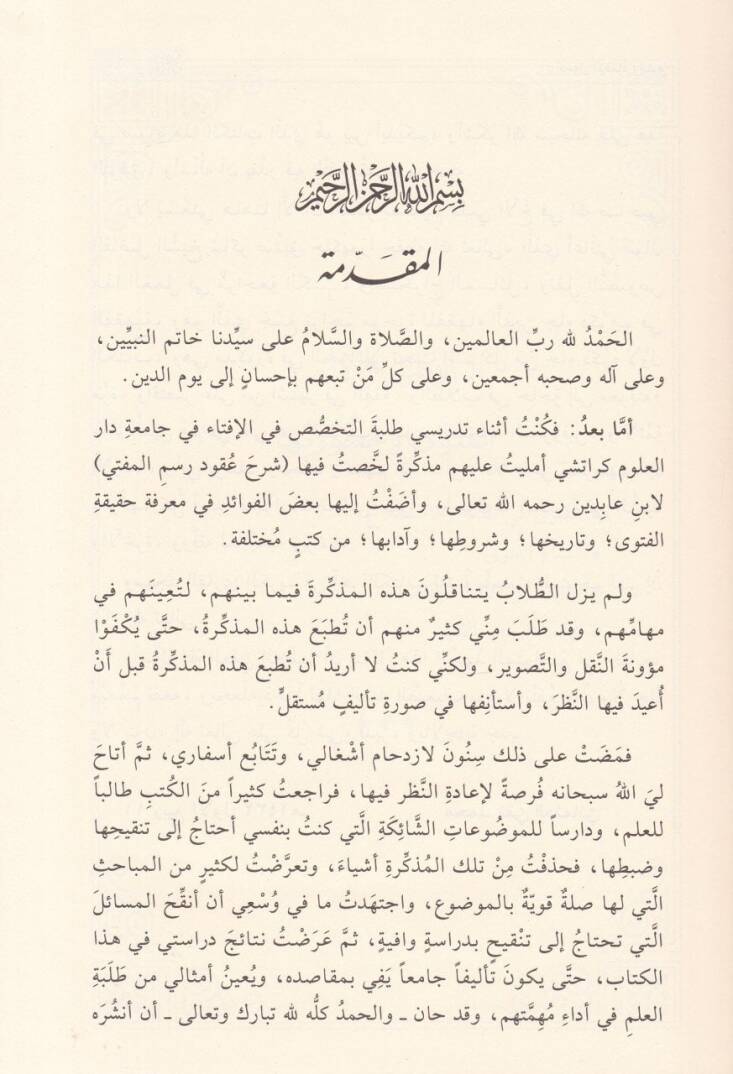 بِسْمِ اللهِ الرَّحْمٰنِ الرَّحِيْمِ
المقَدّمة
الحَمْدُ لله ربِّ العالمين، والصَّلاة والسَّلامُ على سيِّدنا خاتم النبيِّين،
وعلى آله وصحبه أجمعين، وعلى كلِّ مَنْ تبعهم بإحسانٍ إلى يوم الدين.
أمَّا بعدُ: فكُنْتُ أثناء تدريسي طلبةَ التخصُّص في الإفتاء في جامعةِ دار
العلوم كراتشي أمليتُ عليهم مذكِّرةً لخَّصتُ فيها (شرحَ عُقود رسمِ المفتي)
لابنِ عابِدين رحمه الله تعالى، وأضَفْتُ إليها بعضَ الفوائدِ في معرفة حقيقةِ
الفتوى؛ وتاريخها؛ وشروطِها؛ وآدابها؛ من كتبٍ مُختلفة.
ولم يزل الطُّلابُ يتناقلُونَ هذه المذكِّرةَ فيما بينهم، لتُعِينَهم في
مهامِّهم، وقد طَلَبَ مِنِّي كثيرٌ منهم أن تُطبَعَ هذه المذكِّرةُ، حتَّى يُكْفَوْا
مؤونةَ النَّقل والتَّصوير، ولكنِّي كنتُ لا أريدُ أن تُطبعَ هذه المذكِّرةُ قبل أَنْ
أُعيدَ فيها النَّظرَ، وأستأنِفها في صورةِ تأليفٍ مُستقلٍّ.
فمَضَتْ على ذلك سِنُونَ لازدحام أشْغالي، وتَتَابُع أسفاري، ثمَّ أتاحَ
ليَ اللهُ سبحانه فُرصةً لإعادةِ النَّظر فيها، فراجعتُ كثيراً منَ الكُتبِ طالباً
للعلم، ودارساً للموضُوعاتِ الشَّائِكَةِ الَّتي كنتُ بنفسي أحتاجُ إلى تنقيحِها
وضبطِها، فحذفْتُ مِنْ تلك المُذكِّرةِ أشياءَ، وتعرَّضْتُ لكثيرٍ من المباحثِ
الَّتي لها صلةٌ قويّةٌ بالموضوع، واجتهَدتُ ما في وُسْعِي أن أنقِّحَ المسائلَ
الَّتي تحتاجُ إلى تنْقيحٍ بدراسةٍ وافيةٍ، ثمَّ عَرَضْتُ نتائجَ دراستي في هذا
الكتاب، حتَّى يكونَ تأليفاً جامعاً يَفِي بمقاصده، ويُعينُ أمثالي من طَلَبَةِ
العلمِ في أداءِ مُهِمَّتهم، وقد حان ـ والحمدُ كلُّه لله تبارك وتعالى ـ أن أنشُرَه